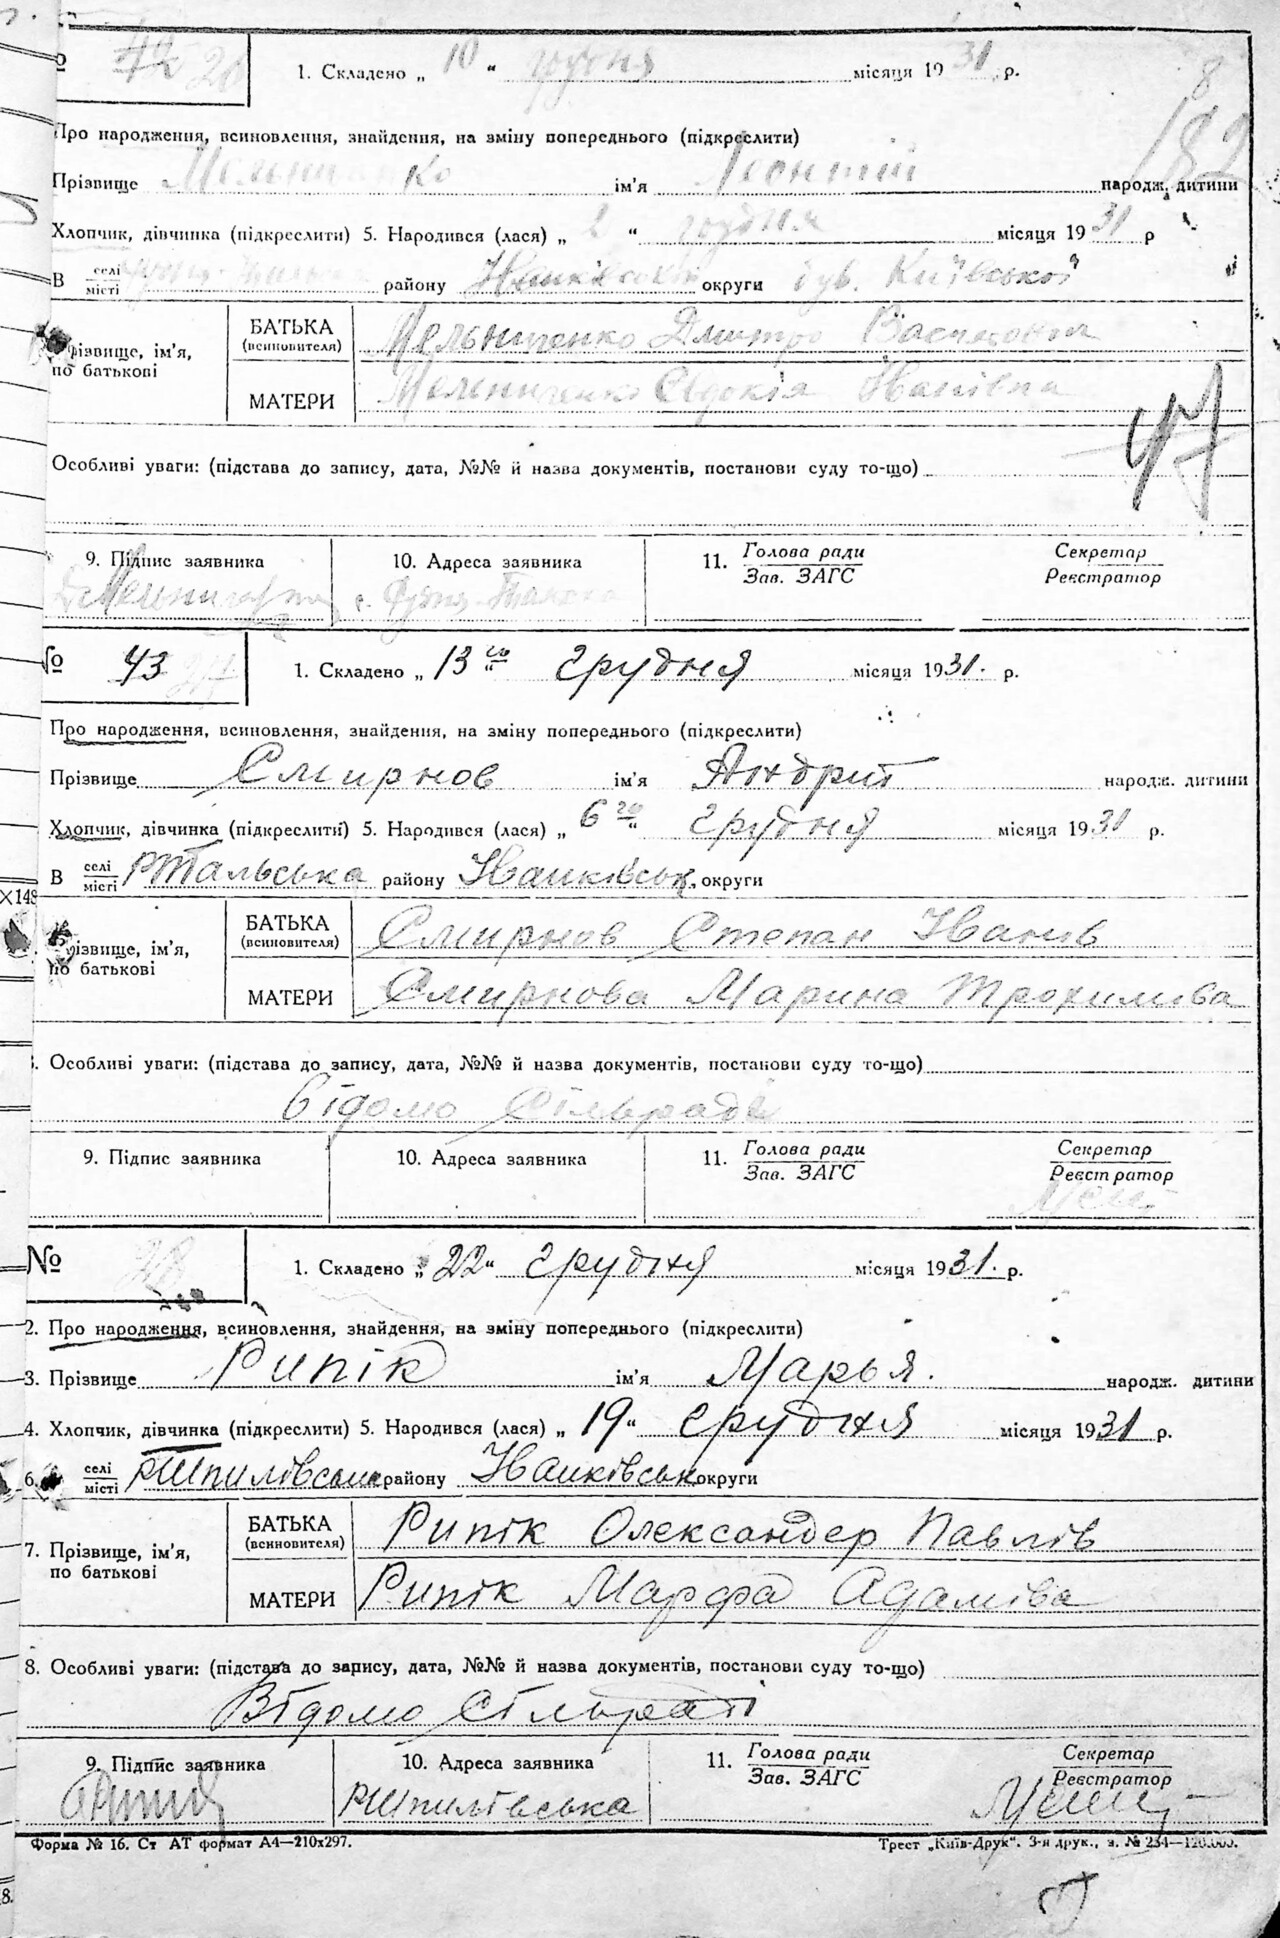 42 26
1. Складено „ 10 " грудня місяця 1931 р.
8
182
Про народження, всиновлення, знайдення, на зміну попереднього (підкреслити)
Прізвище Мельниченко ім'я Леонтій народж. дитини
Хлопчик, дівчинка (підкреслити) 5. Народився (лася) „ 2 " грудня місяця 1931 р
В селі місті району Іванківському округи був. Київської
Прізвище, ім'я, по батькові
БАТЬКА (всиновителя) Мельниченко Дмитро
МАТЕРИ Мельниченко Євдокія Іванівна
47
Особливі уваги: (підстава до запису, дата, №№ й назва документів, постанови суду то-що)
9. Підпис заявника 10. Адреса заявника 11. Голова ради Зав. ЗАГС Секретар Реєстратор
№ 43 27
1. Складено „ 13го " грудня місяця 1931. р.
Про народження, всиновлення, знайдення, на зміну попереднього (підкреслити)
Прізвище Смирнов ім'я Андрий народж. дитини
Хлопчик, дівчинка (підкреслити) 5. Народився (лася) „ 6го " грудня місяця 1931 р.
В селі місті РТальська району Іванківськ. округи
Прізвище, ім'я, по батькові
БАТЬКА (всиновителя) Смирнов Степан Іванів
МАТЕРИ Смирнова Марина Трохимова
Особливі уваги: (підстава до запису, дата, №№ й назва документів, постанови суду то-що)
Відомо Сільраді
9. Підпис заявника 10. Адреса заявника 11. Голова ради Зав. ЗАГС Секретар Реєстратор
№ 28
1. Складено „ 22 " грудня місяця 1931. р.
2. Про народження, всиновлення, знайдення, на зміну попереднього (підкреслити)
3. Прізвище Рипік ім'я Марья. народж. дитини
4. Хлопчик, дівчинка (підкреслити) 5. Народився (лася) „ 19 " грудня місяця 1931 р.
6. селі місті РШпилівська району Іванківськ округи
7. Прізвище, ім'я, по батькові
БАТЬКА (всиновителя) Рипік Олександер Павлів
МАТЕРИ Рипік Марфа Адамiва
8. Особливі уваги: (підстава до запису, дата, №№ й назва документів, постанови суду то-що)
Відомо Сільраті
9. Підпис заявника 10. Адреса заявника 11. Голова ради Зав. ЗАГС Секретар Реєстратор
РШпилівська
Форма № 16. Ст АТ формат А4—210х297. Трест „Київ-Друк". 3-я друк., з. № 234—120.000.